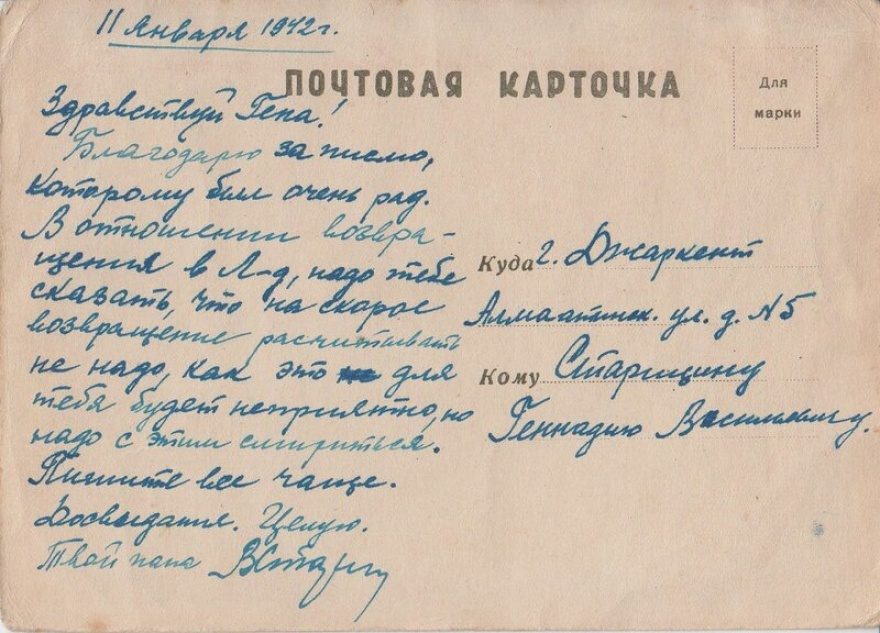 11 января 1942 г.
ПОЧТОВАЯ КАРТОЧКА
Для
марки
Здравствуй Гена!
Благодарю за письмо,
которому был очень рад.
В отношении возвра-
щения в Л-д, надо тебе
сказать, что на скорое
возвращение расчитывать
не надо, как это для
тебя будет неприятно, но
надо с этим смириться.
Пишите все чаще.
Досвидания. Целую.
Твой папа
Куда г. Джаркент
Алмаатинск. ул. д. №5
Кому Старицину
Геннадию Васильевичу.